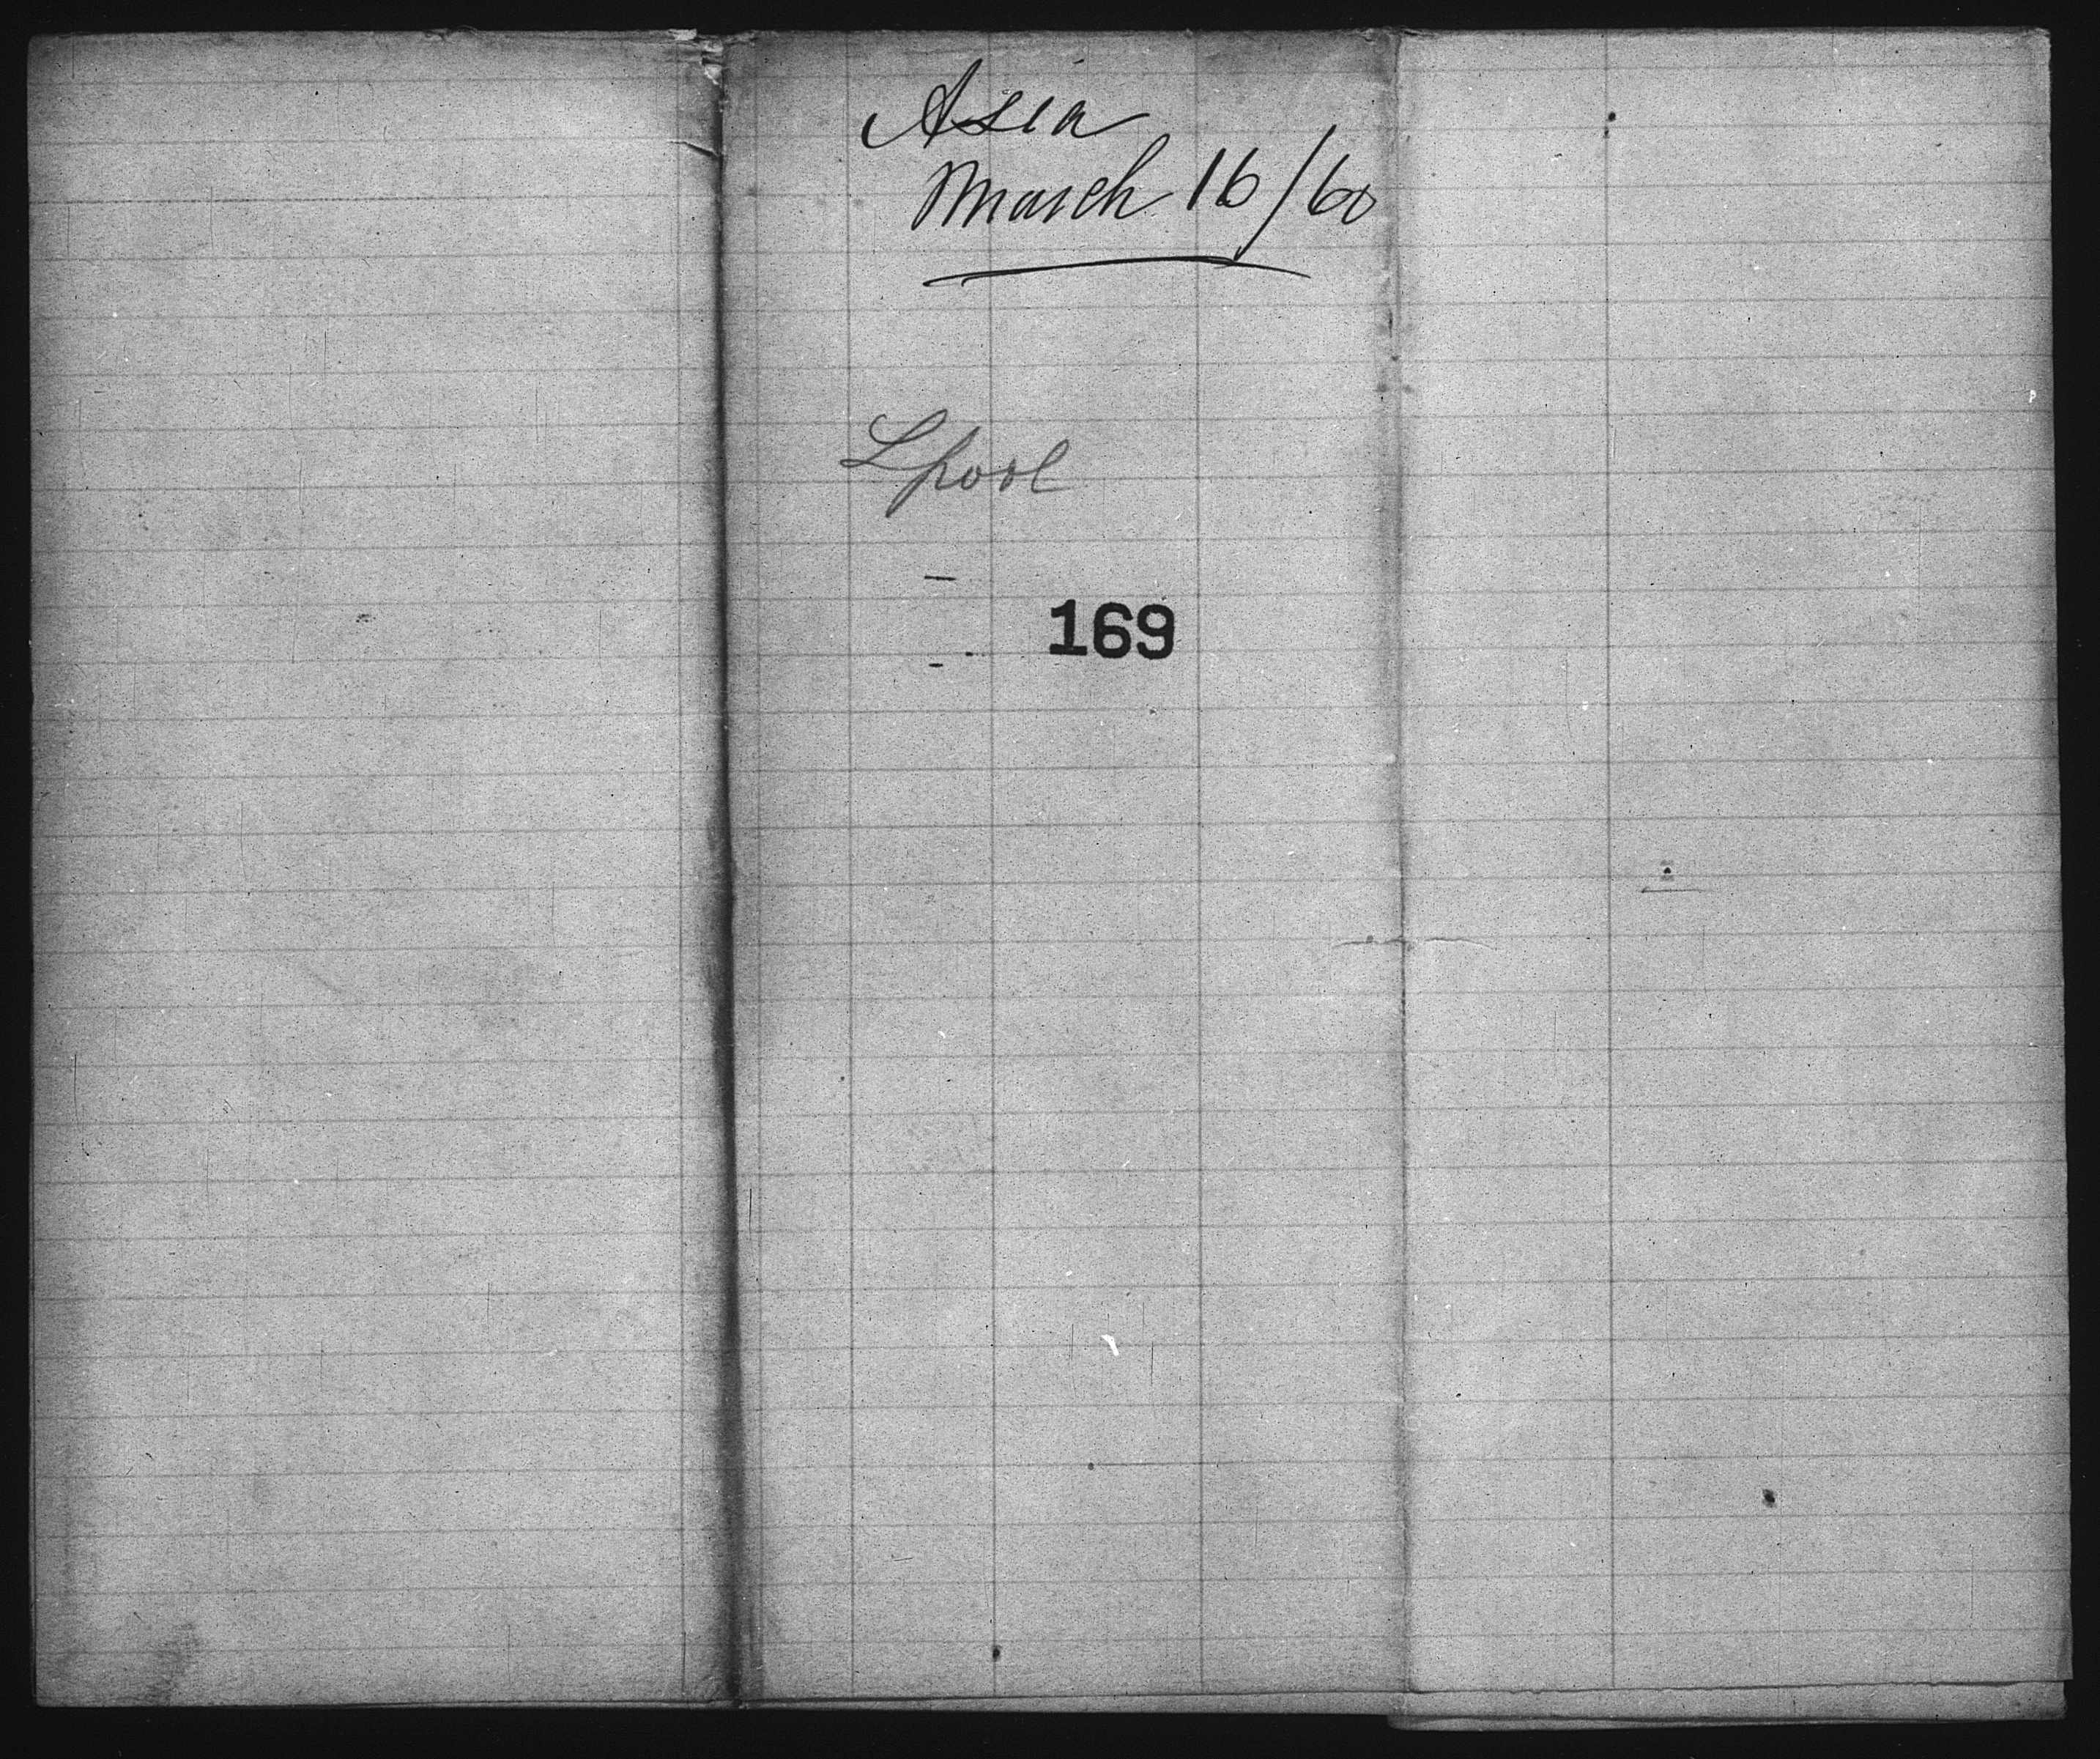 Asia
March 16/60
Lpool
169